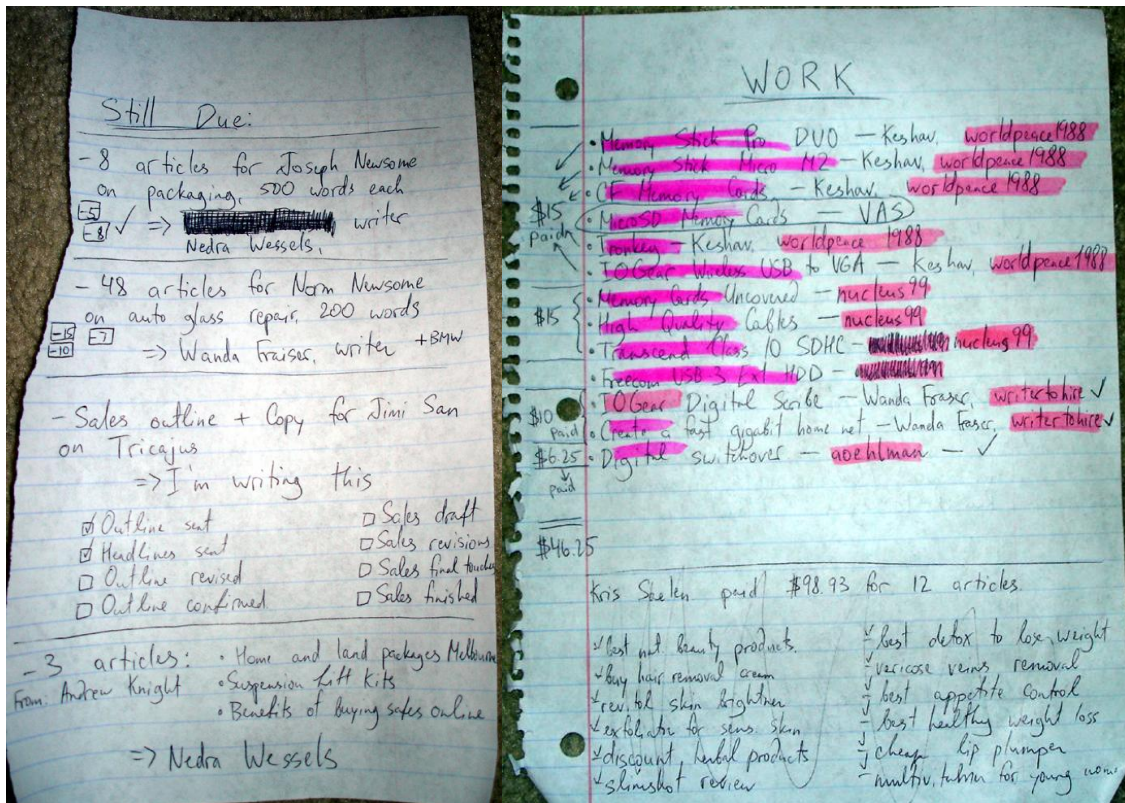 Still Due:
- 8 articles for Joseph Newsome
on packaging, 500 words each
-5
-8 ✓ => writer
Nedra Wessels.
- 48 articles for Norm Newsome
on auto glass repair, 200 words
-15 -7
-10 => Wanda Fraiser, writer +BMW
- Sales outline + Copy for Jimi San
on Tricajus
=> I'm writing this
☑ Outline sent
☑ Headlines sent
☐ Outline revised
☐ Outline confirmed
☐ Sales draft
☐ Sales revisions
☐ Sales final touches
☐ Sales finished
- 3 articles:
From: Andrew Knight
• Home and land packages Melbourne
• Suspension Lift Kits
• Benefits of buying safes online
=> Nedra Wessels
WORK
• Memory Stick Pro DUO — Keshav, worldpeace1988
• Memory Stick Micro M2 — Keshav, worldpeace 1988
• CF Memory Cards — Keshav, worldpeace 1988
$15 paid
• MicroSD Memory Cards — VAS
• Tronkey — Keshav, worldpeace 1988
• IOGear Wireless USB to VGA — Keshav, worldpeace1988
• Memory Cards Uncovered — nucleus99
$15 • High Quality Cables — nucleus99
• Transcend Class 10 SDHC — nucleus99
• Freecom USB 3 Ext HDD —
• IOGear Digital Scribe — Wanda Fraser, writertohire ✓
$10 paid
• Create a fast gigabit home net — Wanda Fraser, writertohire ✓
$6.25 • Digital switchover — aoehlman — ✓
paid
$46.25
Kris paid $98.93 for 12 articles.
✓ best nat. beauty products.
✓ buy hair removal cream
✓ revitol skin brightner
✓ exfoliator for sens. skin
✓ discount herbal products
✓ slimshot review
✓ best detox to lose weight
✓ varicose veins removal
✓ best appetite control
✓ best healthy weight loss
✓ cheap lip plumper
✓ for young